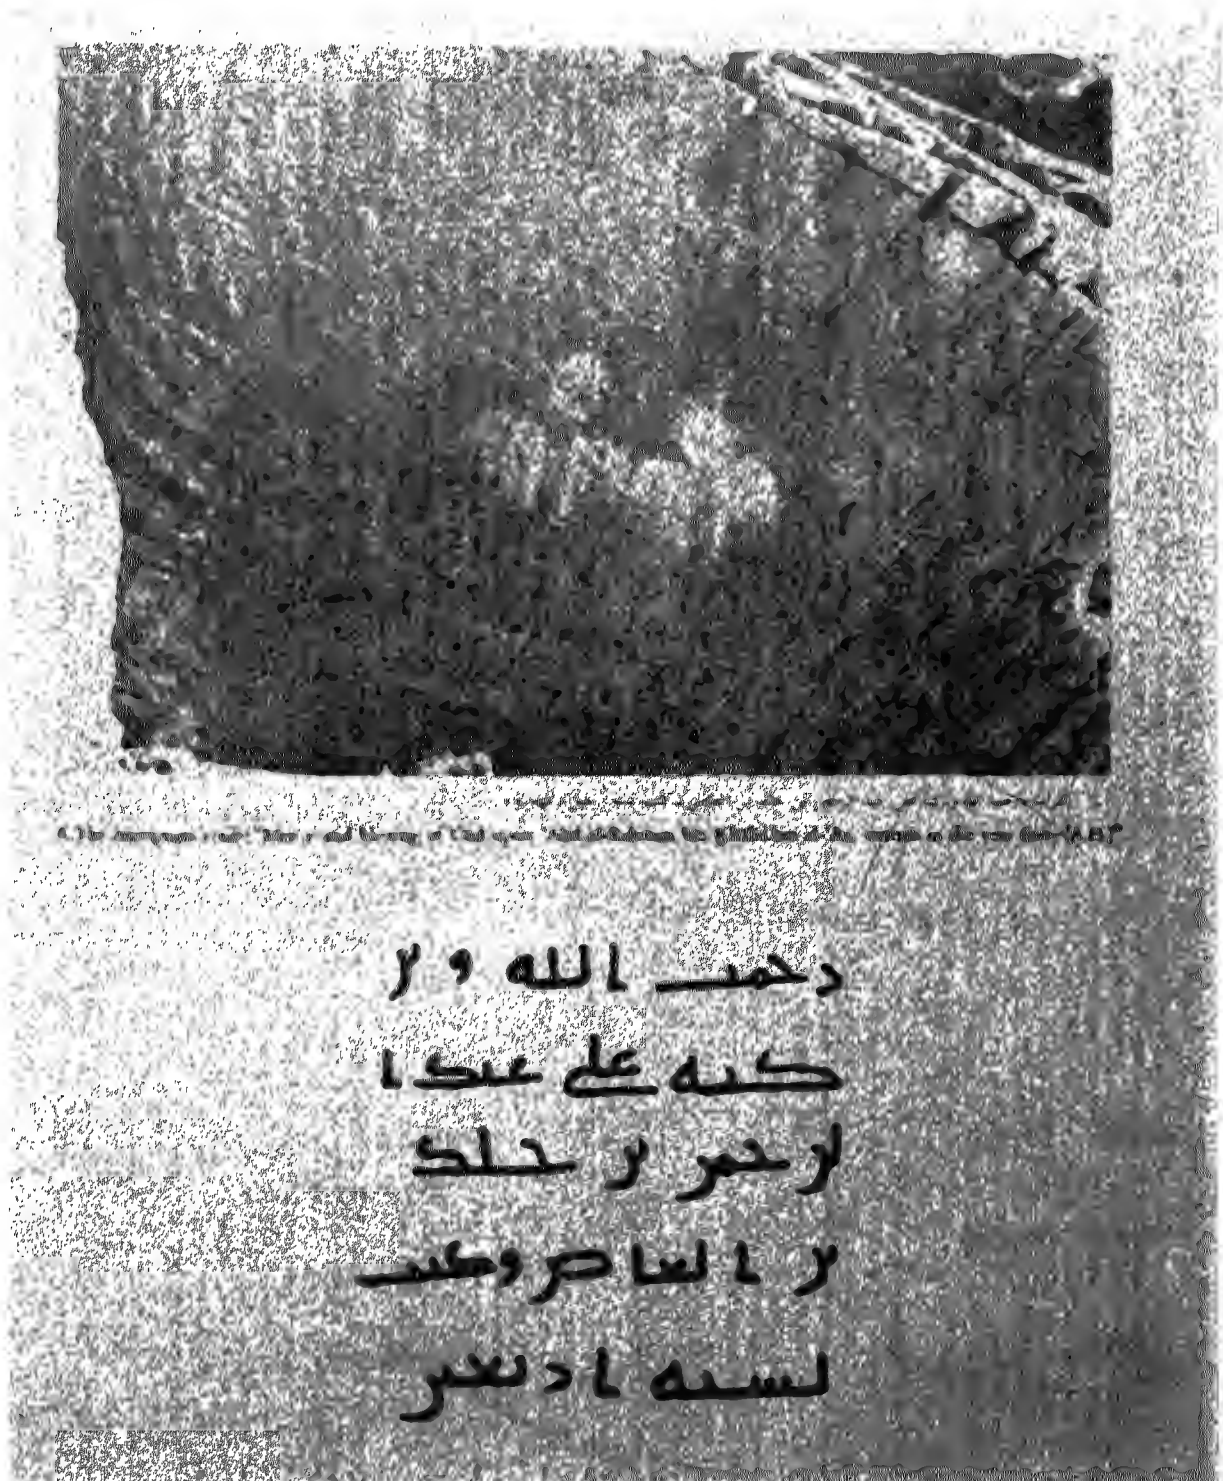 رحمت الله وبر
كته على عبد ا
لرحمن بن خلد
بن العاص وكتب
لسنه اربعين